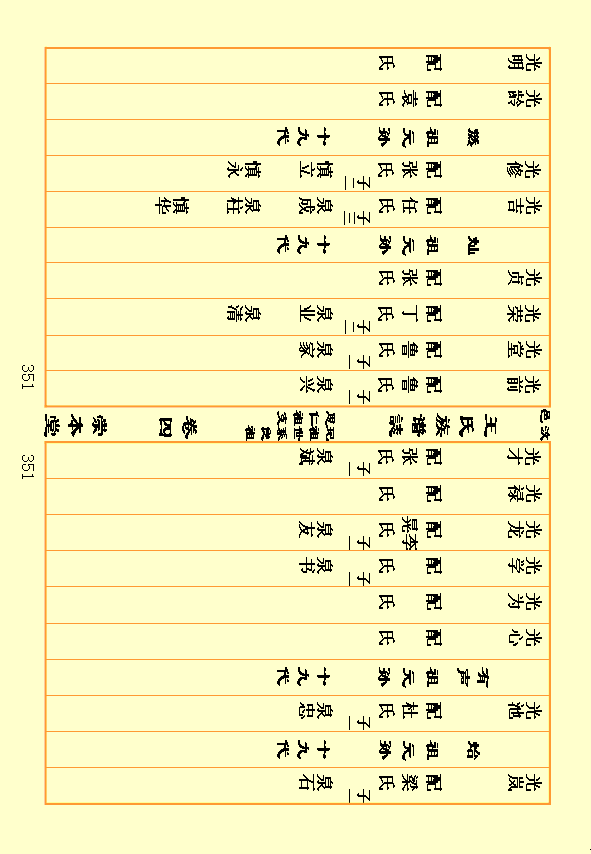 光岚 配梁氏 子一 泉石
祖元孙 十九代
光池 配杜氏 子一 泉忠
有声祖元孙 十九代
光心 配 氏
光为 配 氏
光学 配 氏 子一 泉书
光龙 配晃李氏 子一 泉友
光禄 配 氏
光才 配张氏 子一 泉斌
351
汶邑 王氏族譜誌 卷四 崇本堂
351
光前 配鲁氏 子一 泉兴
光堂 配鲁氏 子一 泉家
光荣 配丁氏 子二 泉业 泉清
光贞 配张氏
灿祖元孙 十九代
光吉 配任氏 子三 泉成 泉柱 慎华
光修 配张氏 子二 慎立 慎永
祖元孙 十九代
光龄 配袁氏
光明 配 氏